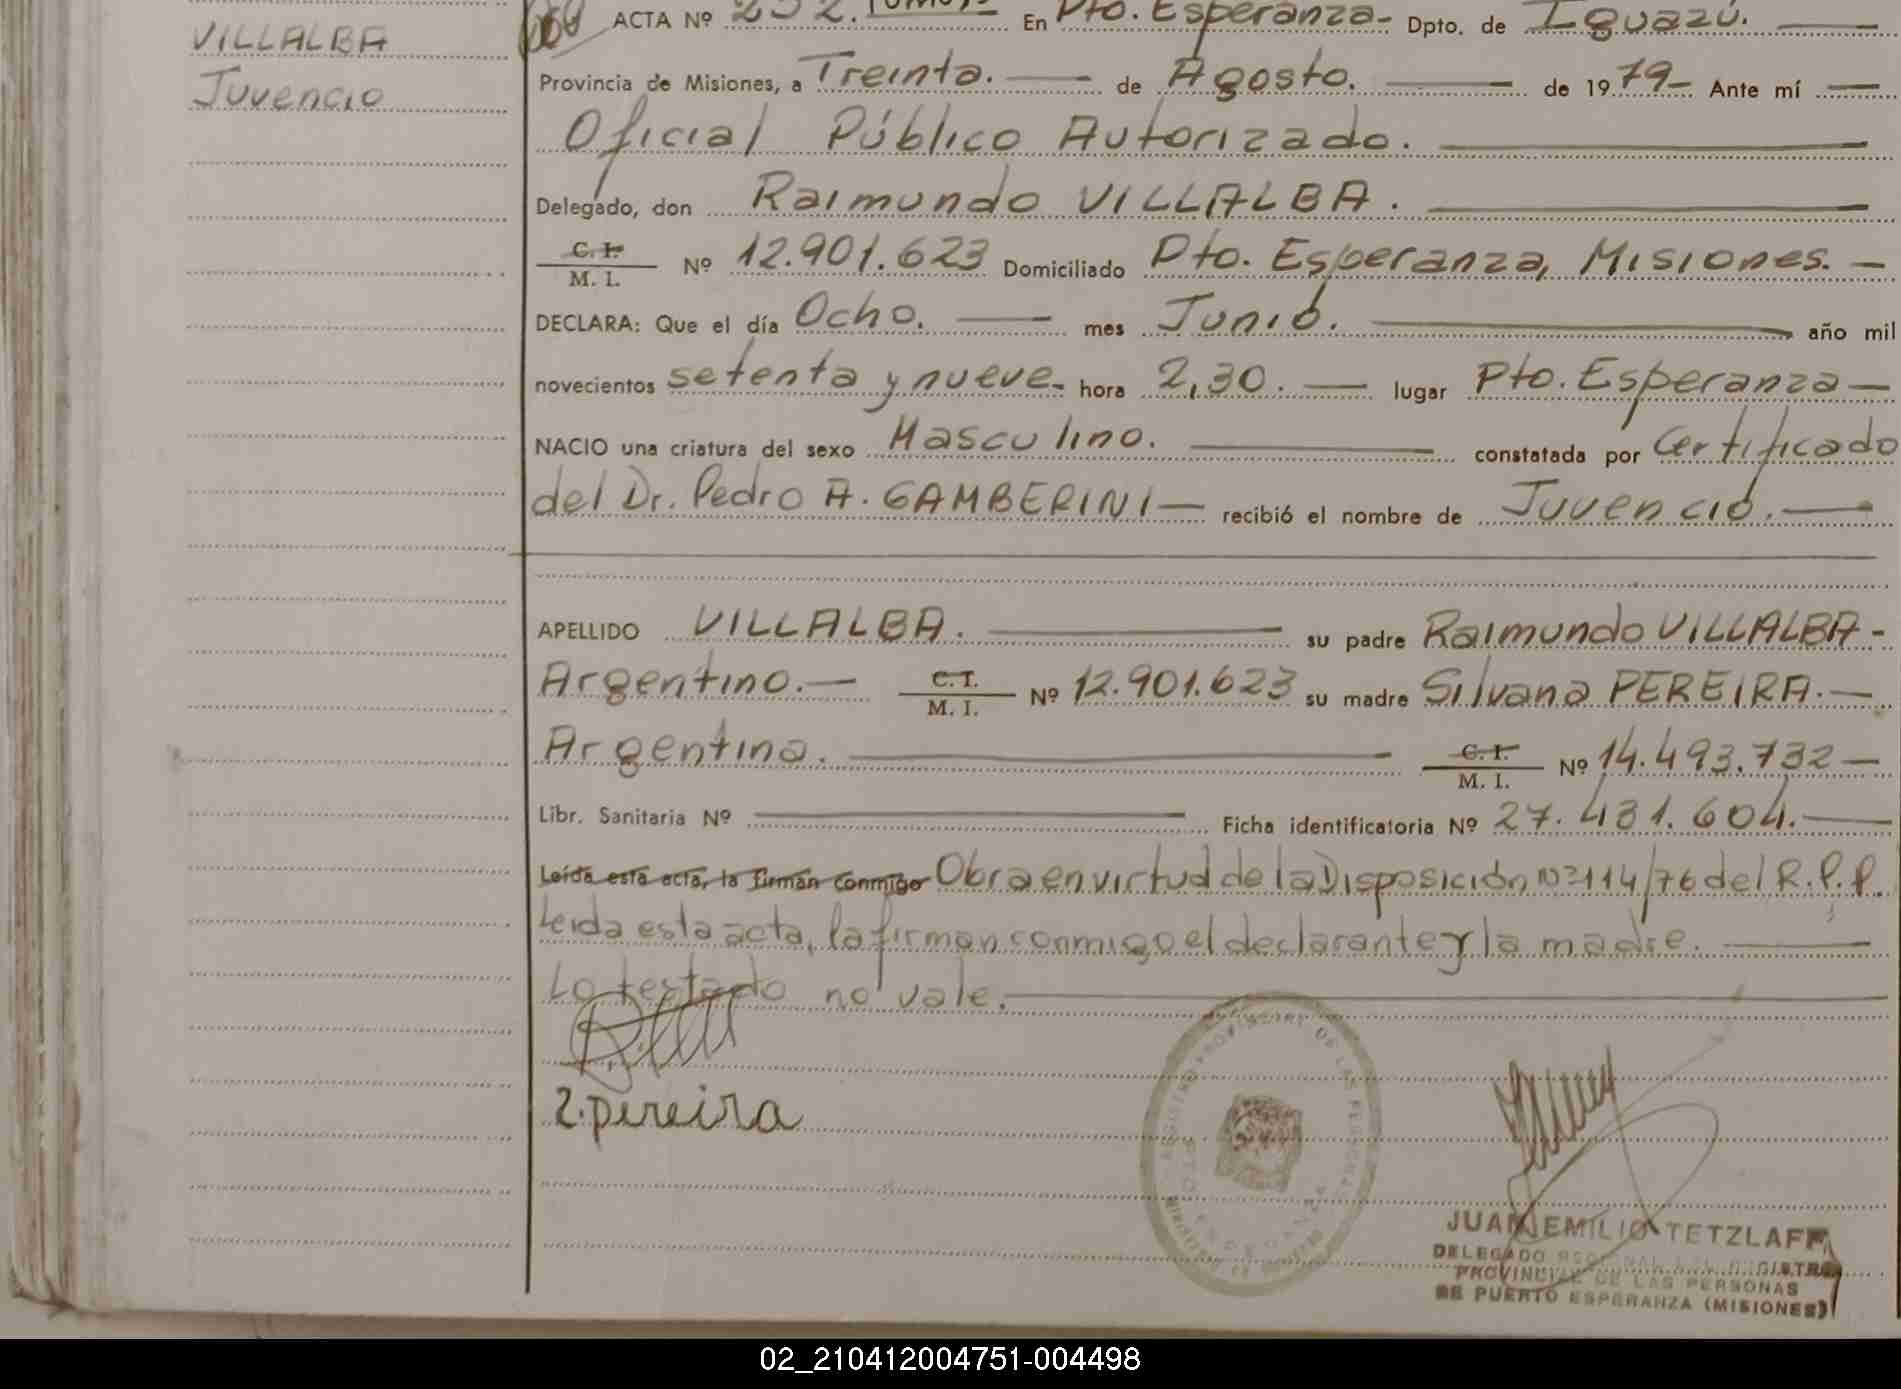 VILLALBA
Juvencio
ACTA Nº 252. Tomo I- En Pto. Esperanza- Dpto. de Iguazú.
Provincia de Misiones, a Treinta. de Agosto. de 1979- Ante mí
Oficial Público Autorizado.
Delegado, don Raimundo VILLALBA.
C. I.
M. I. Nº 12.901.623 Domiciliado Pto. Esperanza, Misiones.
DECLARA: Que el día Ocho. mes Junio. año mil
novecientos setenta y nueve- hora 2,30. lugar Pto. Esperanza
NACIO una criatura del sexo Masculino. constatada por Certificado
del Dr. Pedro A. GAMBERINI recibió el nombre de Juvencio.
APELLIDO VILLALBA. su padre Raimundo VILLALBA-
Argentino. C. I.
M. I. Nº 12.901.623 su madre Silvana PEREIRA.
Argentina. C. I.
M. I. Nº 14.493.732
Libr. Sanitaria Nº Ficha identificatoria Nº 27.431.604.
Leída esta acta, la firman conmigo Obra en virtud de la Disposición Nº 114/76 del R.P.P.
Leida esta acta, la firman conmigo el declarante y la madre.
Lo testado no vale.
S. pereira
JUAN EMILIO TETZLAFF
DELEGADO REGIONAL DEL REGISTRO
PROVINCIAL DE LAS PERSONAS
DE PUERTO ESPERANZA (MISIONES)
02_210412004751-004498